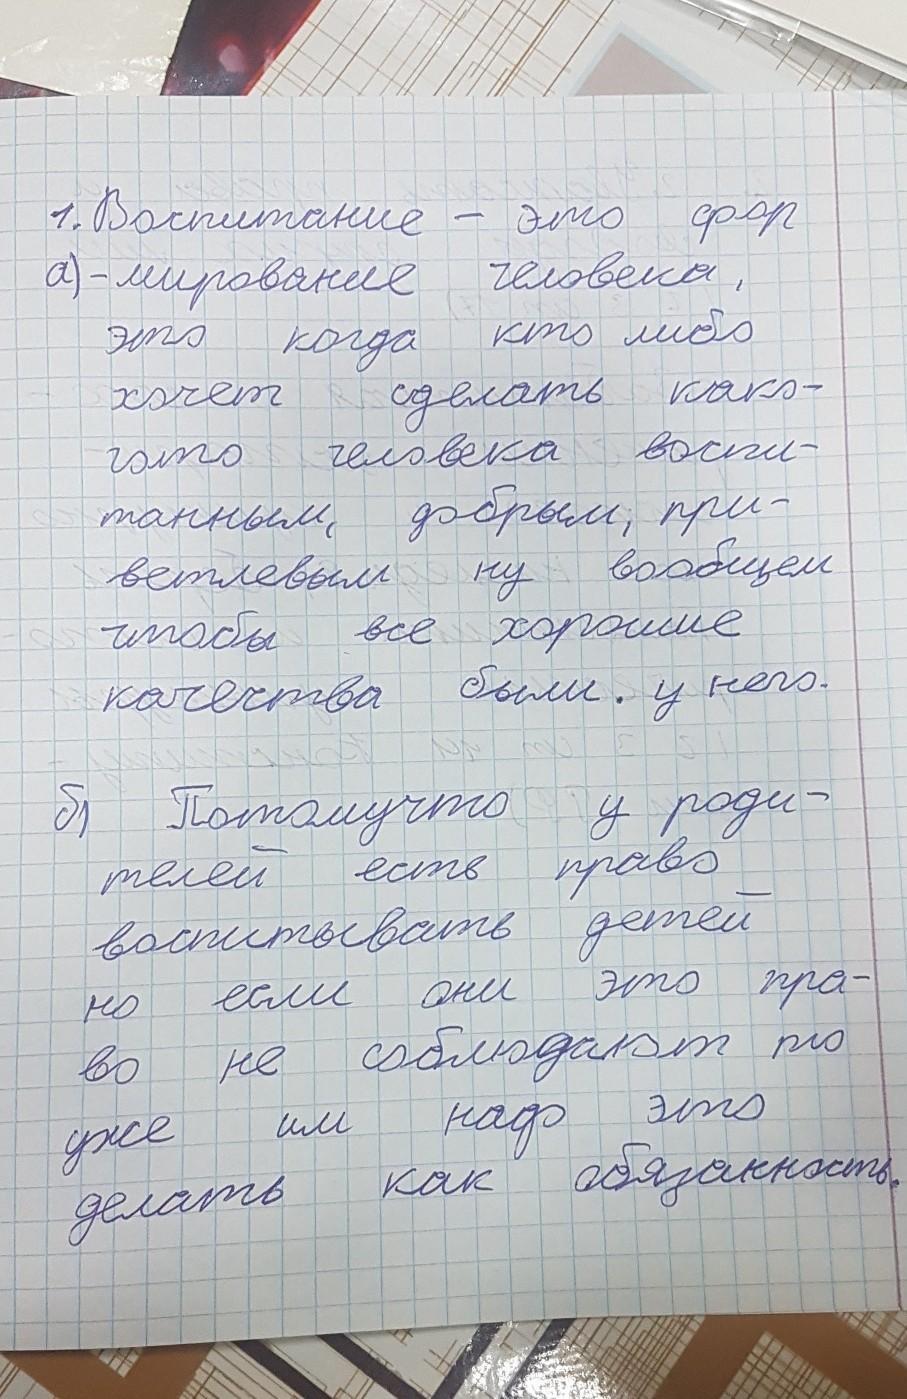 1. Воспитание – это фор
а) -мирование человека,
это когда кто либо
хочет сделать како-
гото человека воспи-
танным, добрым, при-
ветлевым ну вообщем
чтобы все хорошие
качества были. у него.
б) Потомучто у роди-
телей есть право
воспитывать детей
но если они это пра-
во не соблюдают то
уже им надо это
делать как обязанность.